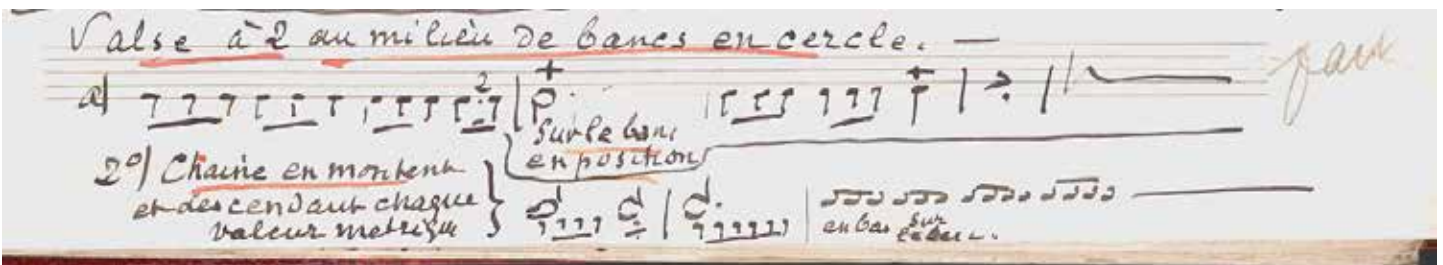 Valse à 2 au milieu de bancs en cercle. —
a)
2
Sur le banc
en position
2º) Chaine en montent
et descendant chaque
valeur metrique
en bas sur